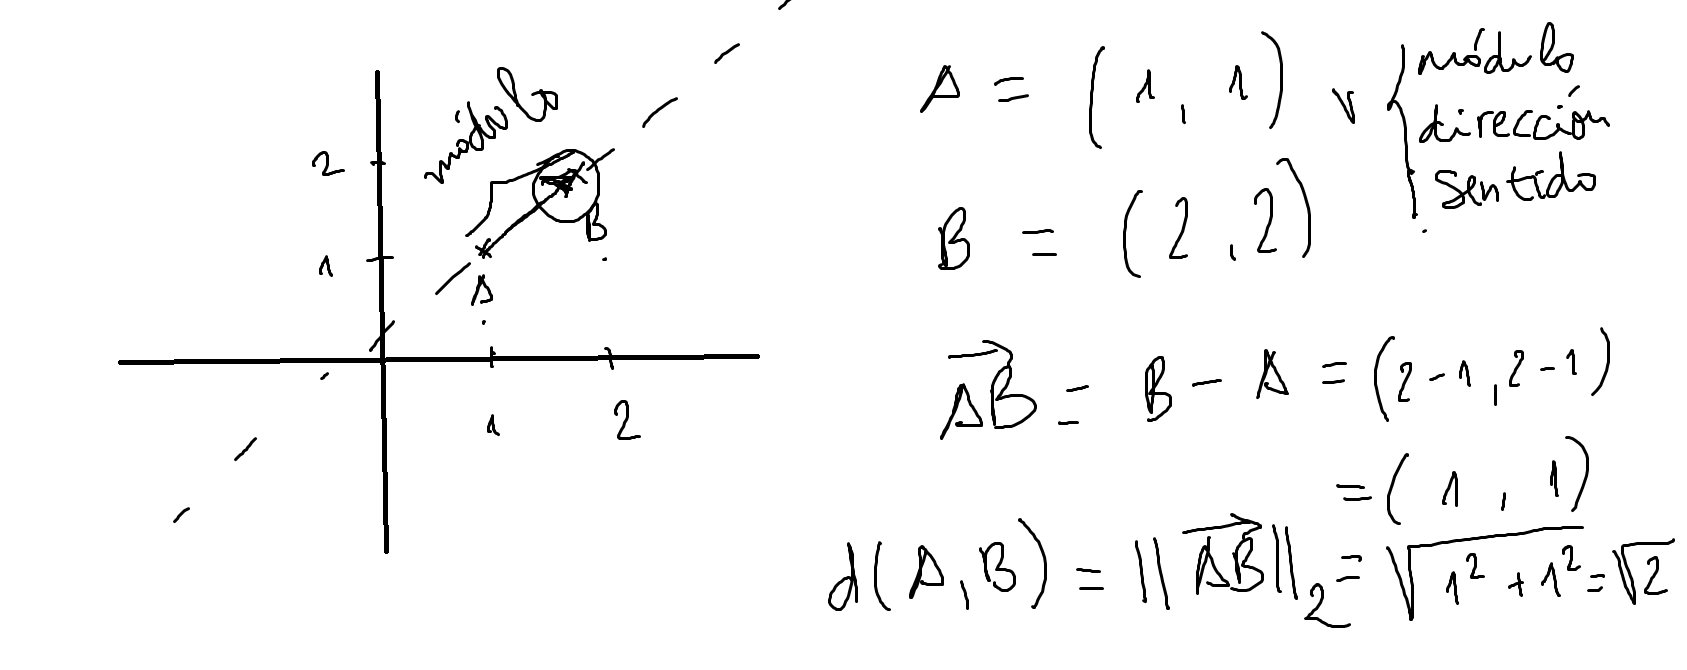 módulo
2
1
A
B
1 2
A = (1, 1) v { módulo
dirección
sentido
B = (2, 2)
AB⃗ = B - A = (2-1, 2-1)
= (1, 1)
d(A, B) = ||AB⃗||₂ = √(1² + 1²) = √2